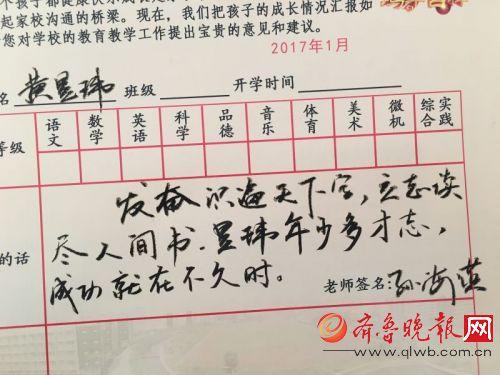 个孩子都健康快乐成长是
起家校沟通的桥梁。现在，我们把孩子的成长情况汇报如
您对学校的教育教学工作提出宝贵的意见和建议。
2017年1月
名 黄昱玮 班级 开学时间
等级 语文 数学 英语 科学 品德 音乐 体育 美术 微机 综合实践
发奋识遍天下字，立志读
尽人间书。昱玮年少多才志，
的话
成功就在不久时。
老师签名：孙海英
齐鲁晚报网
www.qlwb.com.cn